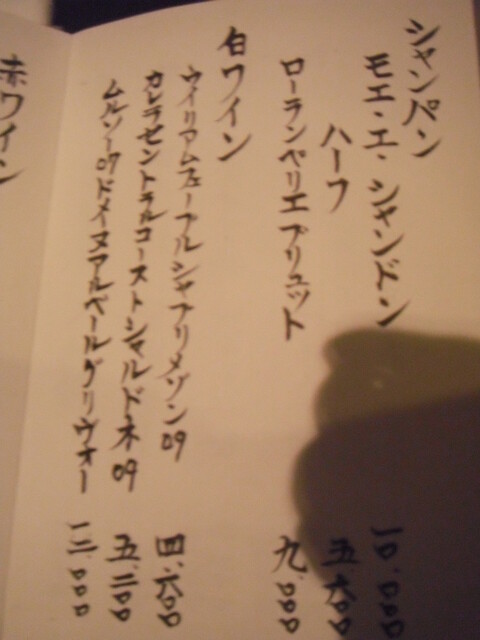 シャンパン
モエ・エ・シャンドン 一〇、〇〇〇
ハーフ 五、六〇〇
ローランペリエブリュット 九、〇〇〇
白ワイン
ウイリアムフェーブルシャブリメゾン09 四、六〇〇
カレラセントラルコーストシャルドネ09 五、二〇〇
ムルソー07ドメイヌアルベールグリヴォー 一二、〇〇〇
赤ワイン